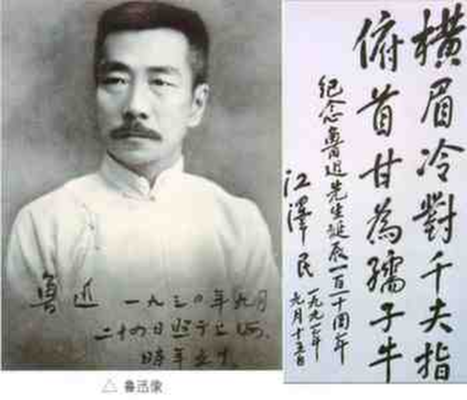 魯迅 一九三〇年九月
二十四日照于上海,
時年五十
△ 鲁迅像
橫眉冷對千夫指
俯首甘為孺子牛
紀念魯迅先生誕辰一百一十周年
江澤民
一九九一年
九月十五日